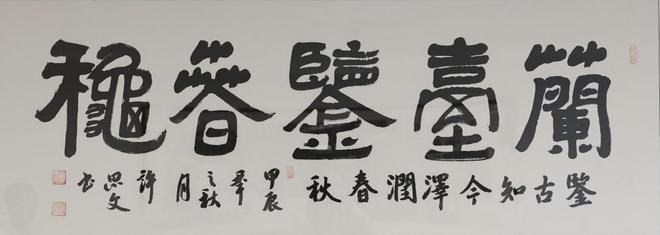 蘭臺鑒春龝
鑒古知今澤潤春秋
甲辰
之秋
月
許
思文
書